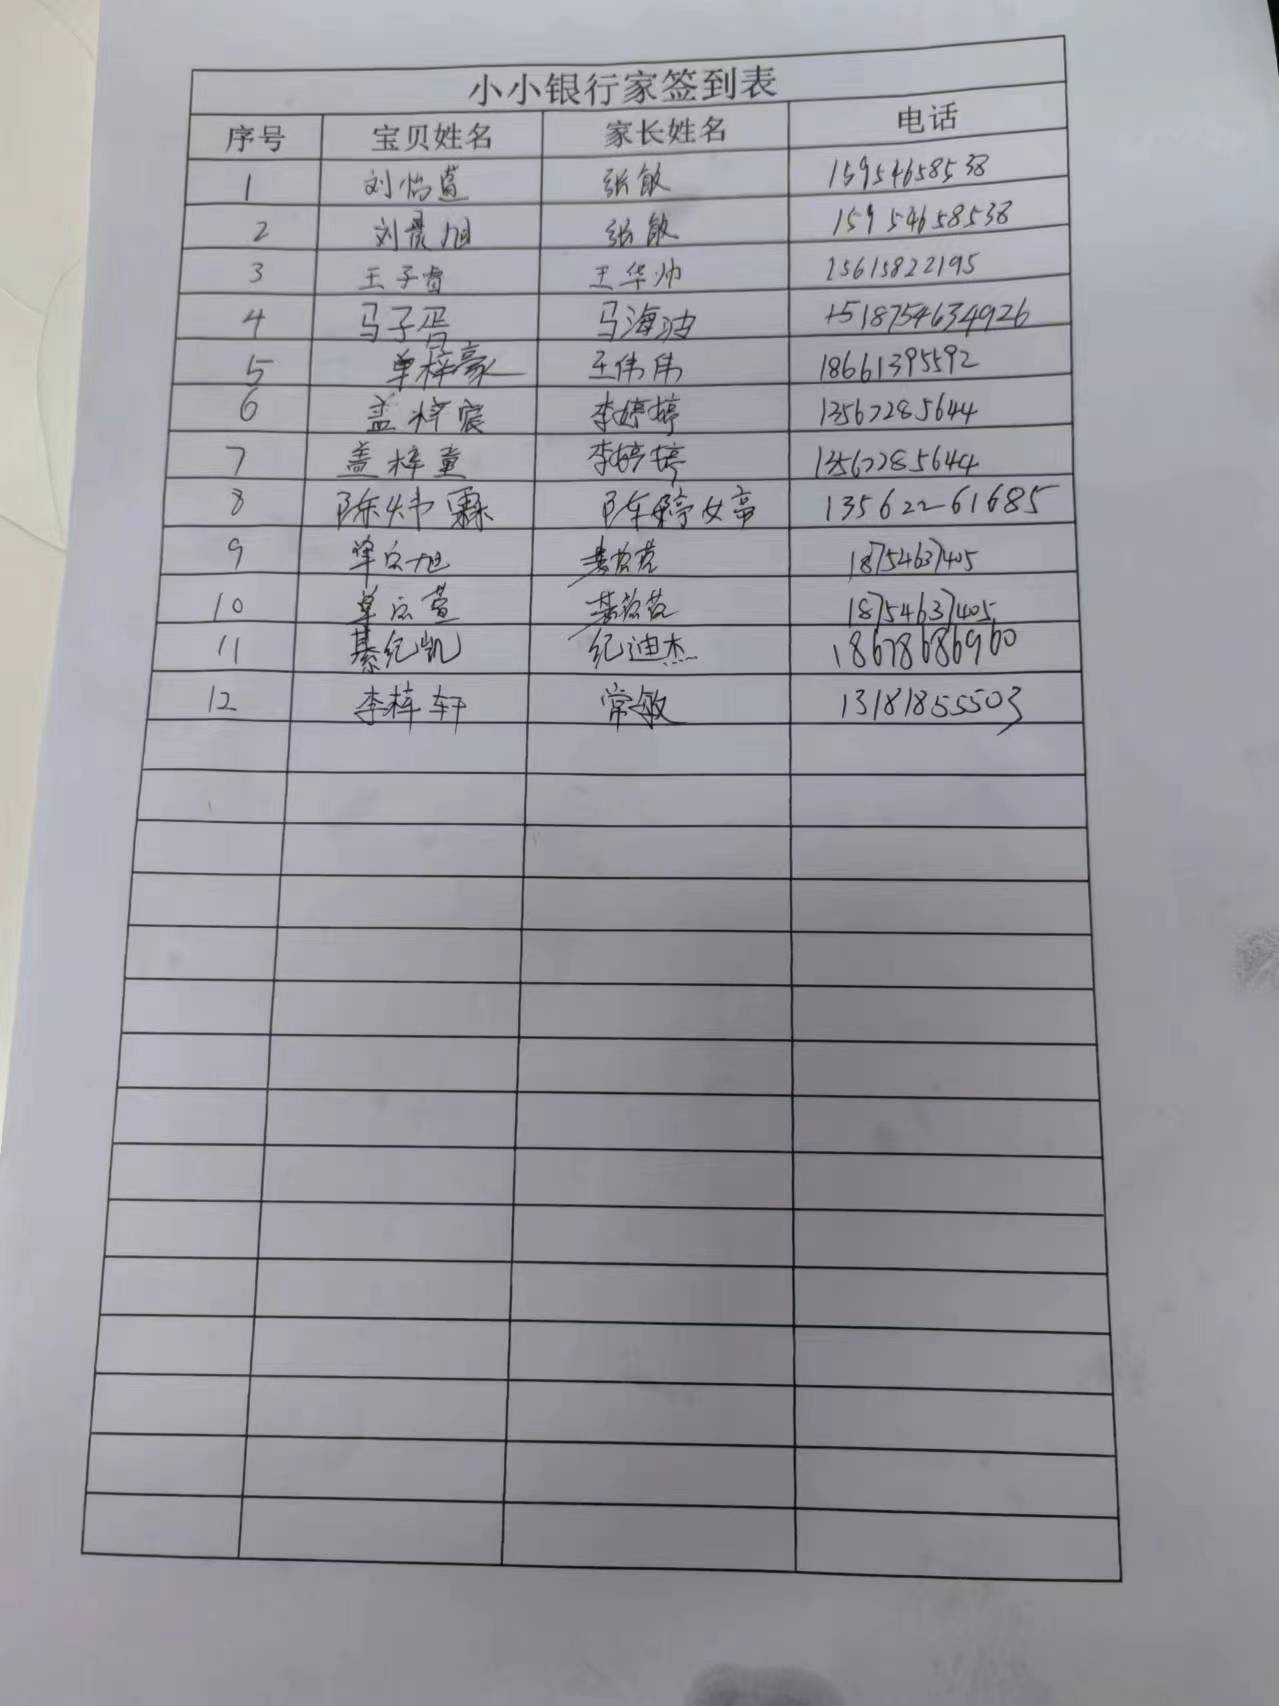 小小银行家签到表
序号 宝贝姓名 家长姓名 电话
1 刘怡萱 张敏 15954658538
2 刘晨旭 张敏 15954658538
3 王子睿 王华帅 15615822195
4 马子胥 马海波 18754634926
5 单梓豪 王伟伟 18661395592
6 盖梓宸 李婷婷 13567285644
7 盖梓童 李婷婷 13567285644
8 陈炜霖 陈婷婷 13562261685
9 单旭 18754637405
10 单萱 18754637405
11 綦纪凯 纪迪杰 18678686960
12 李梓轩 常敏 13181855503